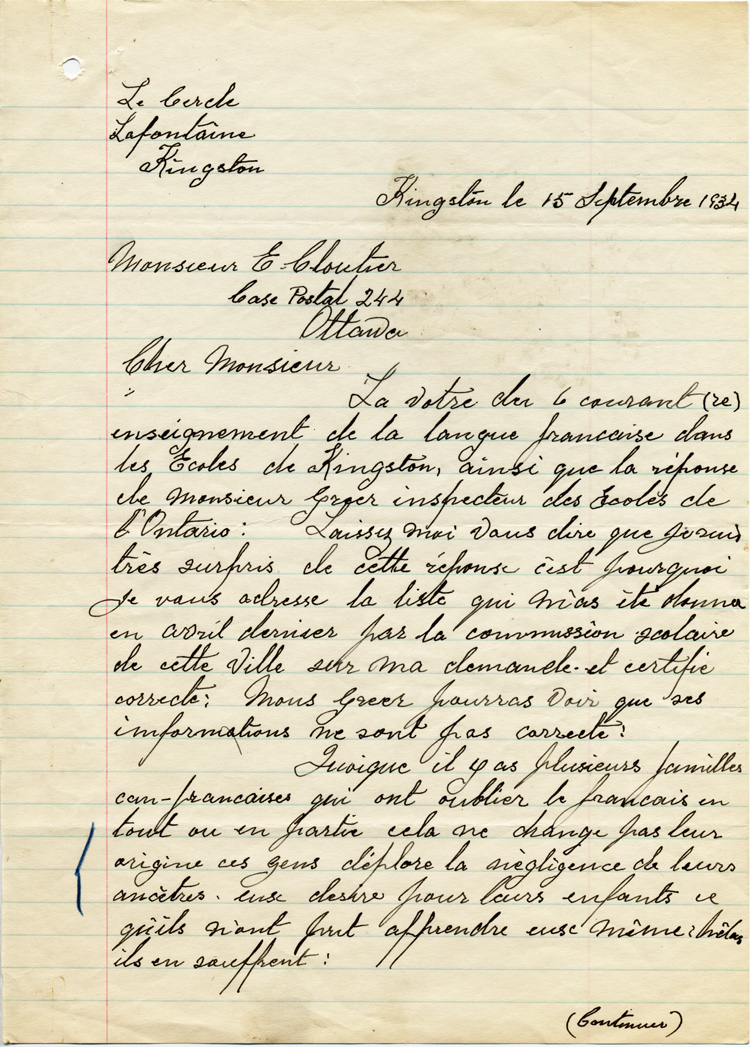 Le Cercle
Lafontaine
Kingston
Kingston le 15 Septembre 1934
Monsieur E. Cloutier
Case Postal 244
Ottawa
Cher Monsieur
La votre du 6 courant (re)
enseignement de la langue francaise dans
les Écoles de Kingston, ainsi que la réponse
de Monsieur Greer inspecteur des Écoles de
l'Ontario: Laissez moi vous dire que je suis
très surpris de cette réponse c'est pourquoi
Je vous adresse la liste qui m'as été donner
en avril dernier par la commission scolaire
de cette Ville sur ma demande - et certifié
correcte: Mons Greer pourras voir que ses
informations ne sont pas correcte:
Quoique il y as plusieurs familles
can-francaises qui ont oublier le francais en
tout ou en partie cela ne change pas leur
origine ces gens déplore la négligence de leurs
ancêtres. eux desire pour leurs enfants ce
qu'ils n'ont put apprendre eux même: hélas
ils en souffrent:
(Continuer)